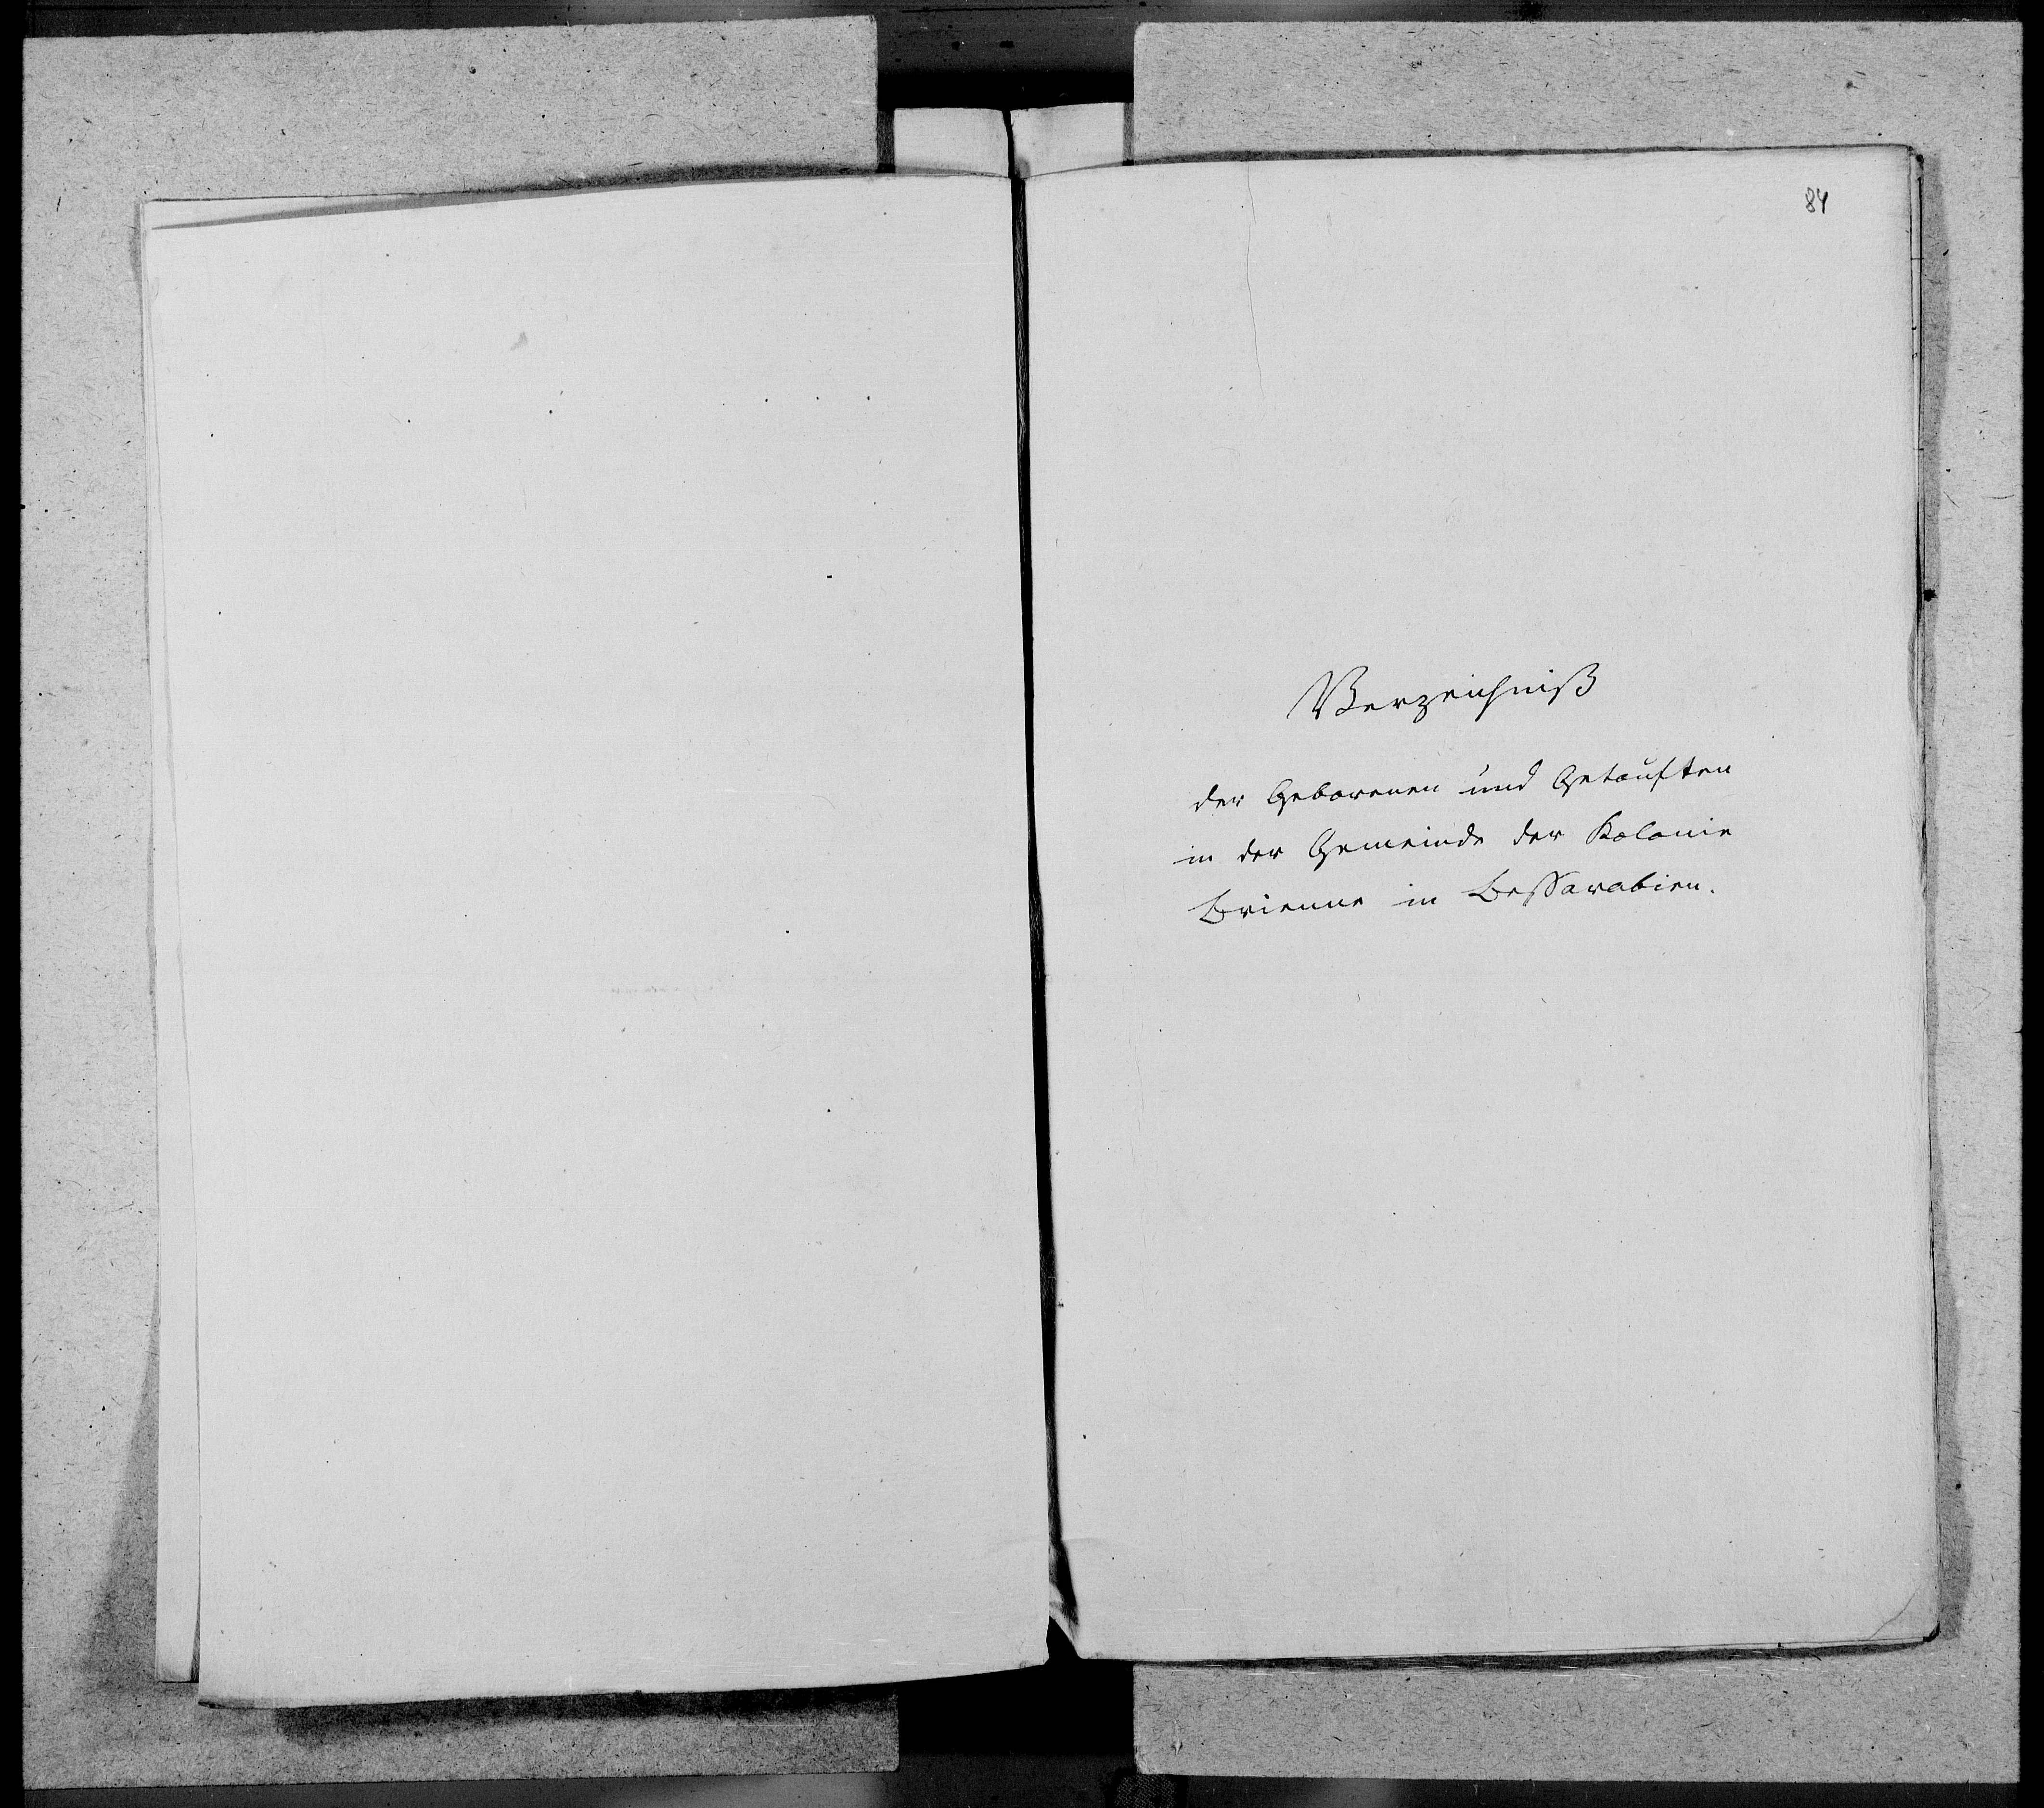 84
Verzeichniß
der Geborenen und Getauften
in der Gemeinde der Kolonie
Brienne in Bessarabien.